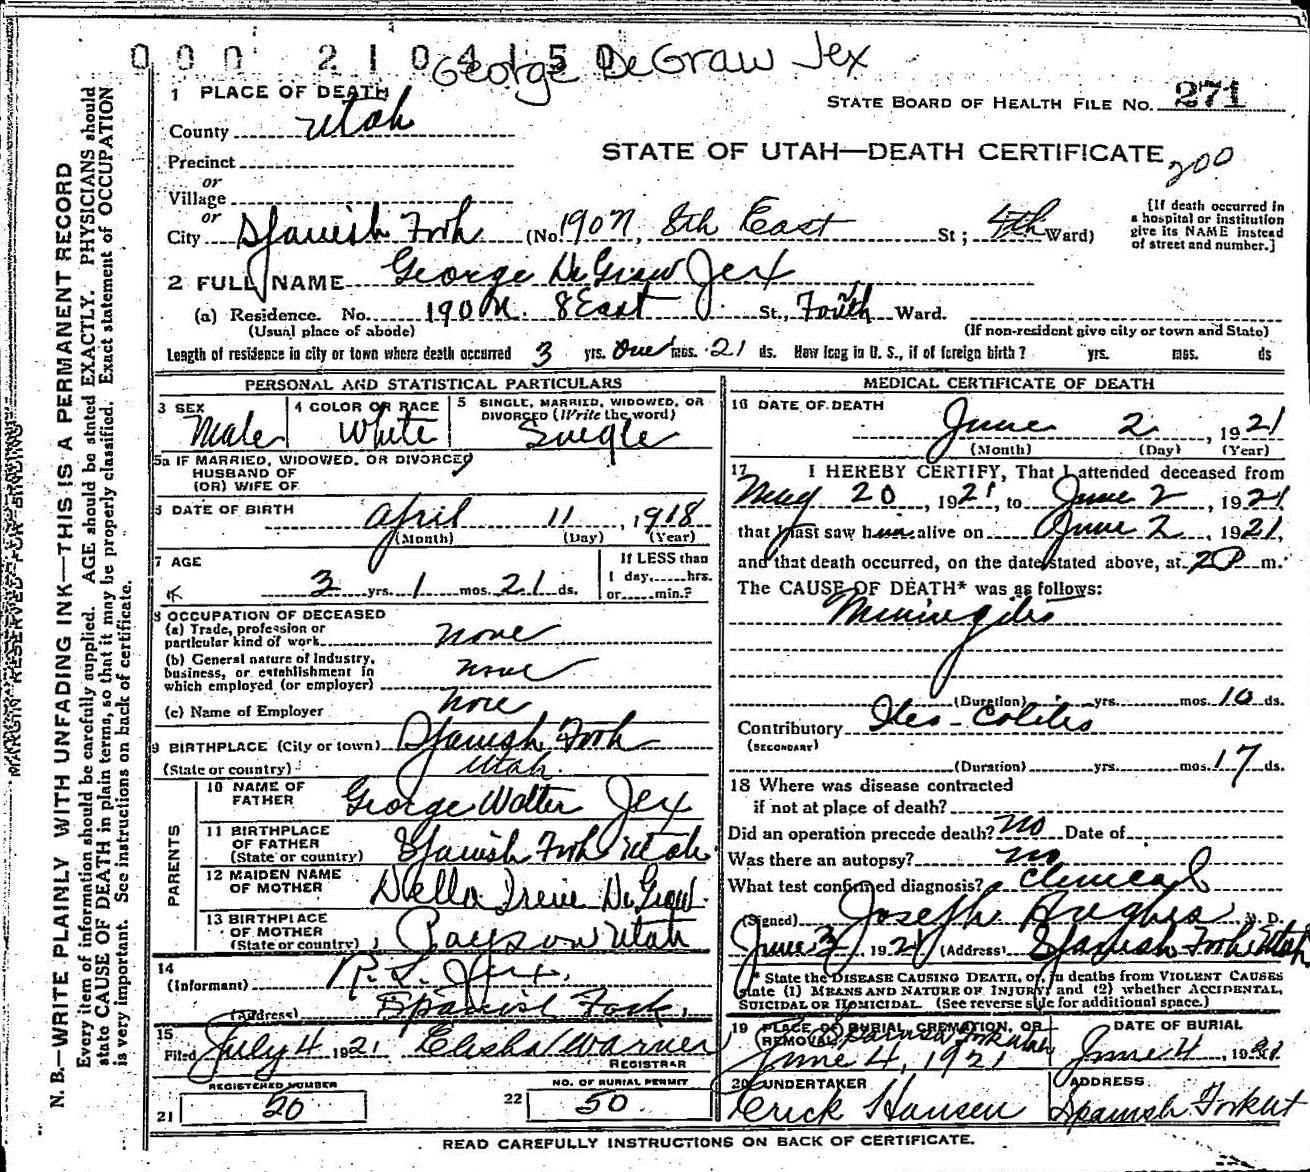 000 2104150
George DeGraw Jex
1 PLACE OF DEATH
STATE BOARD OF HEALTH FILE No. 271
County Utah
Precinct
STATE OF UTAH—DEATH CERTIFICATE
200
or
Village
or
City Spanish Fork (No. 190 N, 8th East St; 4th Ward)
[If death occurred in a hospital or institution give its NAME instead of street and number.]
2 FULL NAME George DeGraw Jex
(a) Residence. No. 190 N. 8 East St., Fourth Ward.
(Usual place of abode) (If non-resident give city or town and State)
Length of residence in city or town where death occurred 3 yrs. One mos. 21 ds. How long in U. S., if of foreign birth? yrs. mos. ds
PERSONAL AND STATISTICAL PARTICULARS
3 SEX Male
4 COLOR OR RACE White
5 SINGLE, MARRIED, WIDOWED, OR DIVORCED (Write the word) Single
5a IF MARRIED, WIDOWED, OR DIVORCED
HUSBAND OF
(OR) WIFE OF
6 DATE OF BIRTH April 11, 1918
(Month) (Day) (Year)
7 AGE 3 yrs. 1 mos. 21 ds.
If LESS than
1 day,......hrs.
or......min.?
8 OCCUPATION OF DECEASED
(a) Trade, profession or
particular kind of work none
(b) General nature of industry,
business, or establishment in
which employed (or employer) none
(c) Name of Employer none
9 BIRTHPLACE (City or town) Spanish Fork
(State or country) Utah.
PARENTS
10 NAME OF FATHER George Walter Jex
11 BIRTHPLACE OF FATHER (State or country) Spanish Fork Utah.
12 MAIDEN NAME OF MOTHER Della Irene DeGraw.
13 BIRTHPLACE OF MOTHER (State or country) Payson Utah
14
(Informant) R. L. Jex,
(Address) Spanish Fork,
15
Filed July 4 1921 Elisha Warner
REGISTRAR
REGISTERED NUMBER
21 50
NO. OF BURIAL PERMIT
22 50
MEDICAL CERTIFICATE OF DEATH
16 DATE OF DEATH
June 2, 1921
(Month) (Day) (Year)
17 I HEREBY CERTIFY, That I attended deceased from
May 20, 1921, to June 2, 1921
that I last saw him alive on June 2, 1921,
and that death occurred, on the date stated above, at 2 P m.
The CAUSE OF DEATH* was as follows:
Meningitis
(Duration) yrs. mos. 10 ds.
Contributory Ileo-Colitis
(SECONDARY)
(Duration) yrs. mos. 17 ds.
18 Where was disease contracted
if not at place of death?
Did an operation precede death? no Date of
Was there an autopsy? no
What test confirmed diagnosis? Clinical
(Signed) Joseph Hughes, M. D.
June 3, 1921 (Address) Spanish Fork Utah
* State the DISEASE CAUSING DEATH, or, in deaths from VIOLENT CAUSES
state (1) MEANS AND NATURE OF INJURY; and (2) whether ACCIDENTAL,
SUICIDAL OR HOMICIDAL. (See reverse side for additional space.)
19 PLACE OF BURIAL, CREMATION, OR REMOVAL Spanish Fork Utah
June 4, 1921
DATE OF BURIAL
June 4, 1921
20 UNDERTAKER
Erick Hansen
ADDRESS
Spanish Fork Ut
READ CAREFULLY INSTRUCTIONS ON BACK OF CERTIFICATE.
MARGIN RESERVED FOR BINDING
N. B.—WRITE PLAINLY WITH UNFADING INK—THIS IS A PERMANENT RECORD
Every item of information should be carefully supplied. AGE should be stated EXACTLY. PHYSICIANS should
state CAUSE OF DEATH in plain terms, so that it may be properly classified. Exact statement of OCCUPATION
is very important. See instructions on back of certificate.